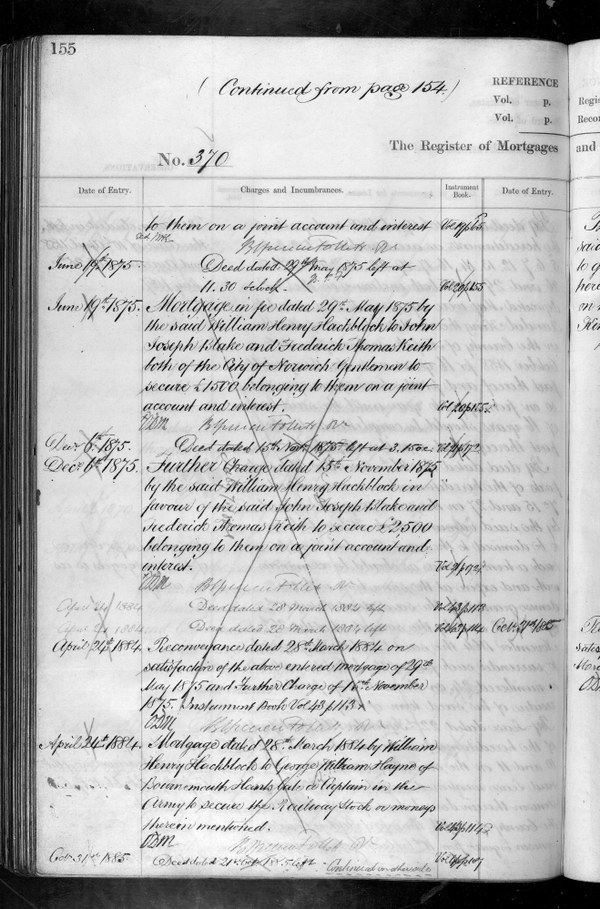 155
(Continued from page 154.)
REFERENCE
Vol. p.
Vol. p.
The Register of Mortgages
No. 370
Date of Entry.
Charges and Incumbrances.
Instrument Book.
Date of Entry.
to them on a joint account and interest
June 19th 1875. Deed dated 29th May 1875 left at
11.30 o'clock. Vol 20 p 155
June 19th 1875. Mortgage in fee dated 29th May 1875 by
the said William Henry Hackblock to John
Joseph Blake and Frederick Thomas Keith
both of the City of Norwich Gentlemen to
secure £1500 belonging to them on a joint
account and interest. Vol 20 p 155
ODM
Decr 6th 1875. Deed dated 15th Novr 1875 left at 3.15
Decr 6th 1875. Further Charge dated 15th November 1875
by the said William Henry Hackblock in "
favour of the said John Joseph Blake and
Frederick Thomas Keith to secure £2500
belonging to them on a joint account and
interest.
ODM
April 24 1884 Deed dated 28 March 1884 left
April 24 1884 Deed dated 28 March 1884 left
April 24th 1884 Reconveyance dated 28th March 1884 on
satisfaction of the above entered mortgage of 29th
May 1875 and Further Charge of 15th November
1875. Instrument Book Vol 43 p 113
ODM
April 24th 1884. Mortgage dated 28th March 1884 by William
Henry Hackblock to George William Hayne of
Bournemouth Hants late a Captain in the
Army to secure the Railway Stock or moneys
therein mentioned. Vol 43 p 114
ODM
Octr 31st 1885 Deed dated 21st left
Continued on other side
and